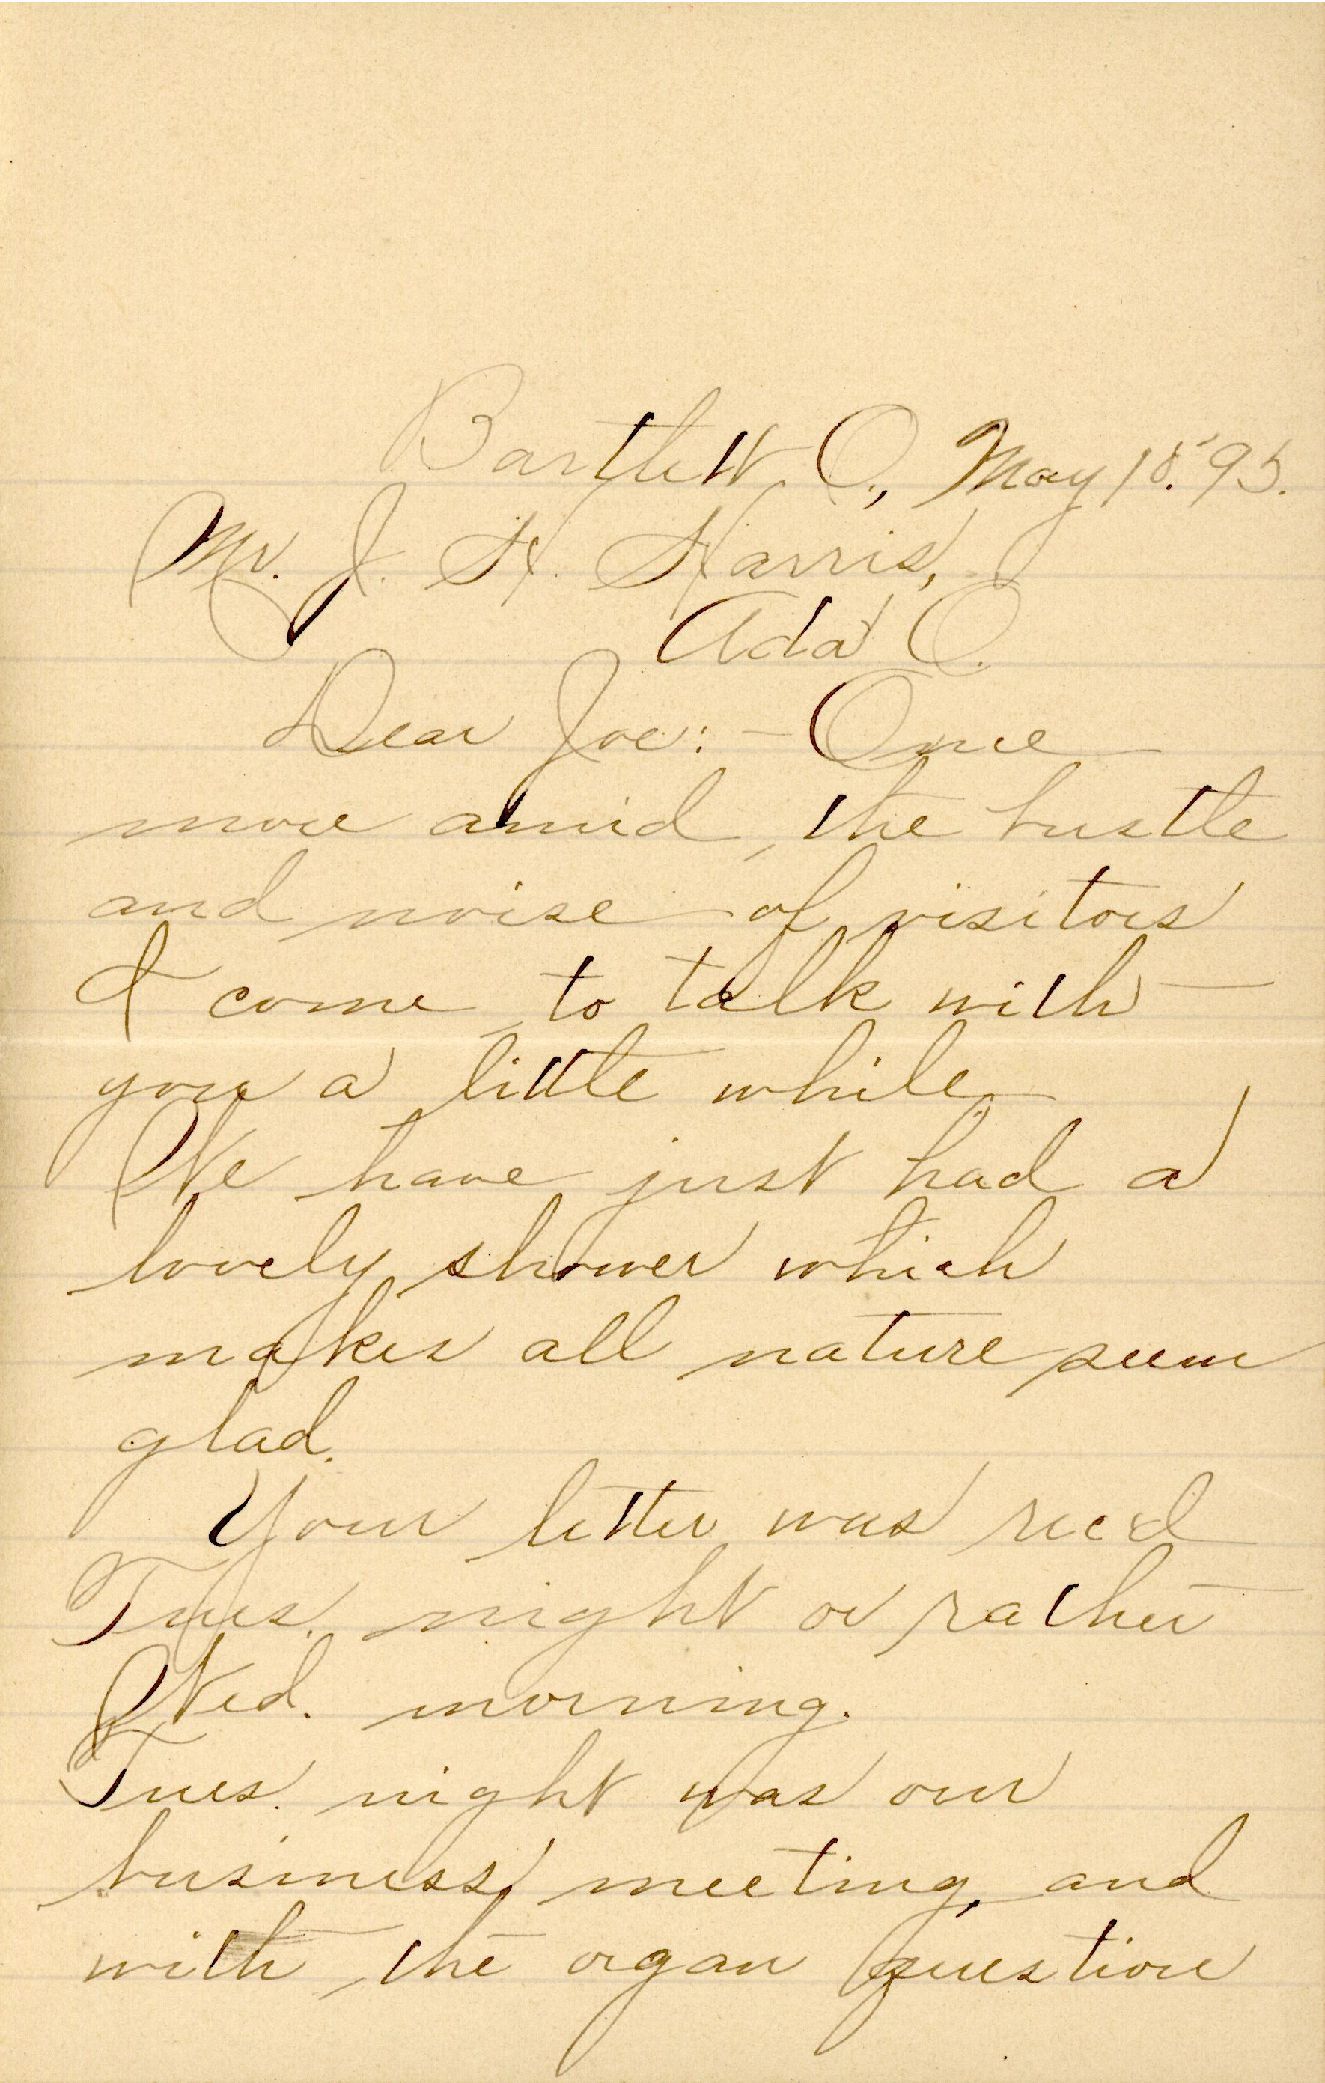 Bartlett O., May 18, '95.
Mr. J. H. Harris,
Ada O.
Dear Joe: - Once
more amid the bustle
and noise of visitors
I come to talk with
you a little while
We have just had a
lovely shower which
makes all nature seem
glad.
Your letter was rec'd
Tues. night or rather
Wed. morning.
Tues. night was our
business meeting, and
with the organ question